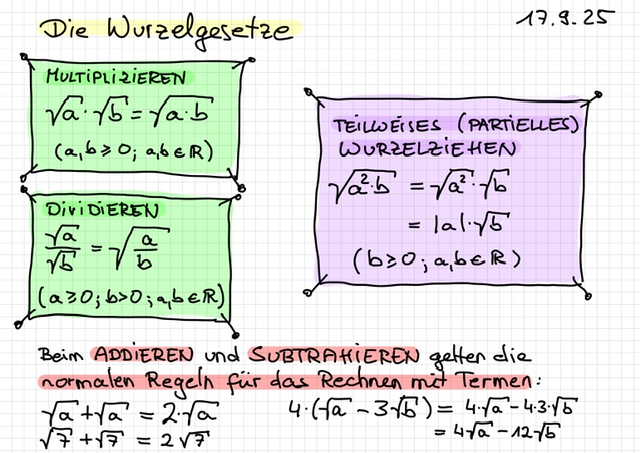 Die Wurzelgesetze
17.9.25
MULTIPLIZIEREN
√a · √b = √(a·b)
(a,b ≥ 0; a,b ∈ ℝ)
DIVIDIEREN
√a/√b = √(a/b)
(a ≥ 0; b > 0; a,b ∈ ℝ)
TEILWEISES (PARTIELLES)
WURZELZIEHEN
√(a²·b) = √a² · √b
= |a| · √b
(b ≥ 0; a,b ∈ ℝ)
Beim ADDIEREN und SUBTRAHIEREN gelten die
normalen Regeln für das Rechnen mit Termen:
√a + √a = 2·√a
√7 + √7 = 2√7
4·(√a − 3√b) = 4·√a − 4·3·√b
= 4√a − 12√b